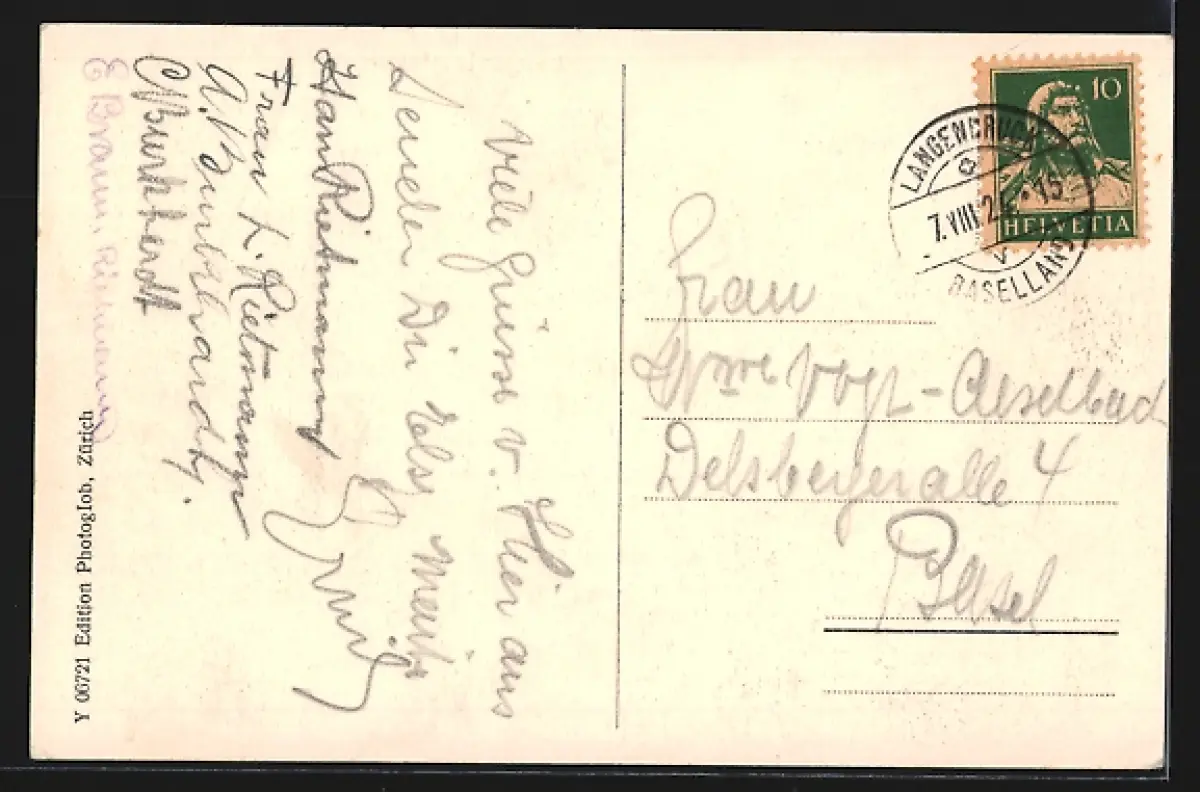 Viele Grüsse v. Hier aus
senden Dir Else
Hans Rietmann
Frau L. Rietmann
A. Burkhardt.
C Burkhardt
E Braun
Y 06721 Edition Photoglob, Zürich
10
HELVETIA
LANGENBRUCK
7.VIII 15
BASELLAND
Frau
Vogt - Aeselbad
Delsbergeralle 4
Basel